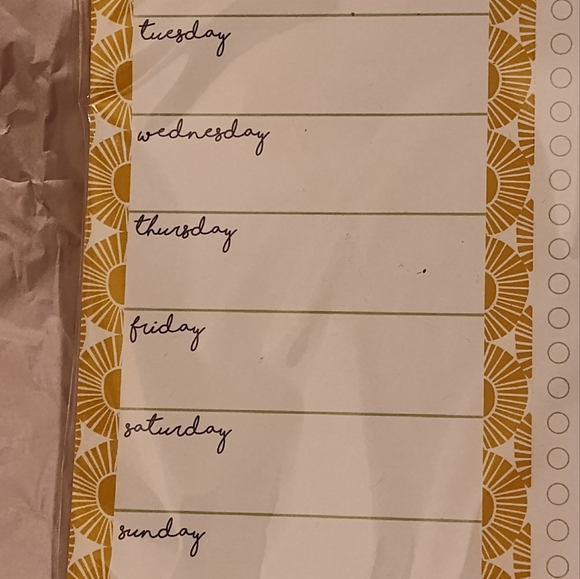 tuesday
wednesday
thursday
friday
saturday
sunday